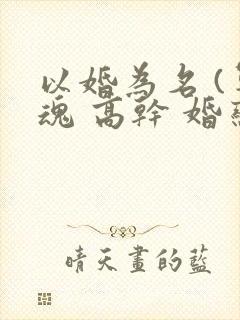 以婚為名(
魂 高幹 婚
晴天畫的藍